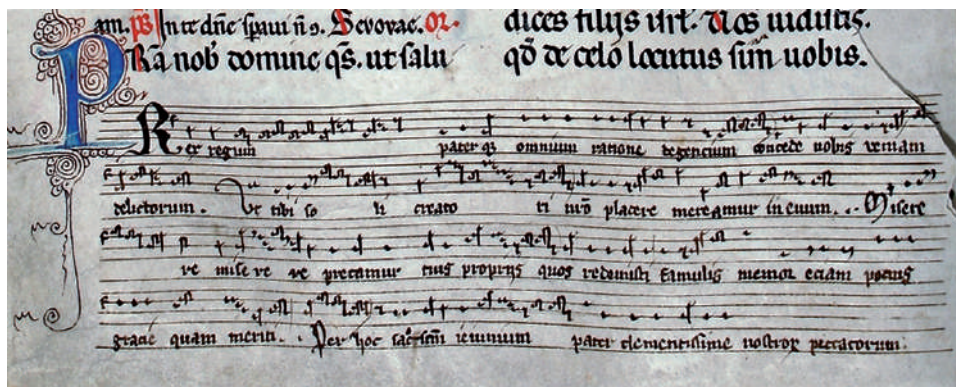 am. ps In te dñe spaui ñ 9. Sevovac. Or.
PRa nob domine qs. ut salu
dices filijs isrl. Vos vidistis.
qð de celo locutus sum vobis.
Rex regum pater omnium ratione degencium concede nobis veniam
delictorum. Ut tibi so li creato ri nro placere mereamur in evum. . Misere
re mise re re precamur tuis propriis quos redemisti famulis memor eciam pocius
gracie quam meriti. . Per hoc sacrm ieiunium pater clementissime nostror peccatorum.